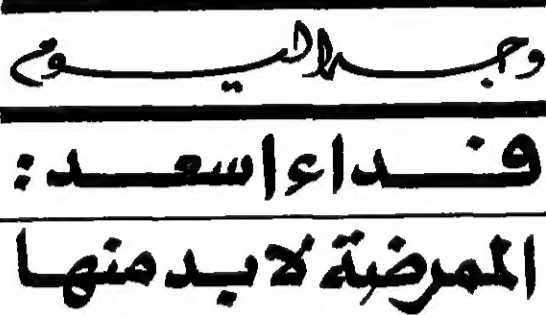 وجه اليوم
فداء اسعد:
الممرضة لا بد منها